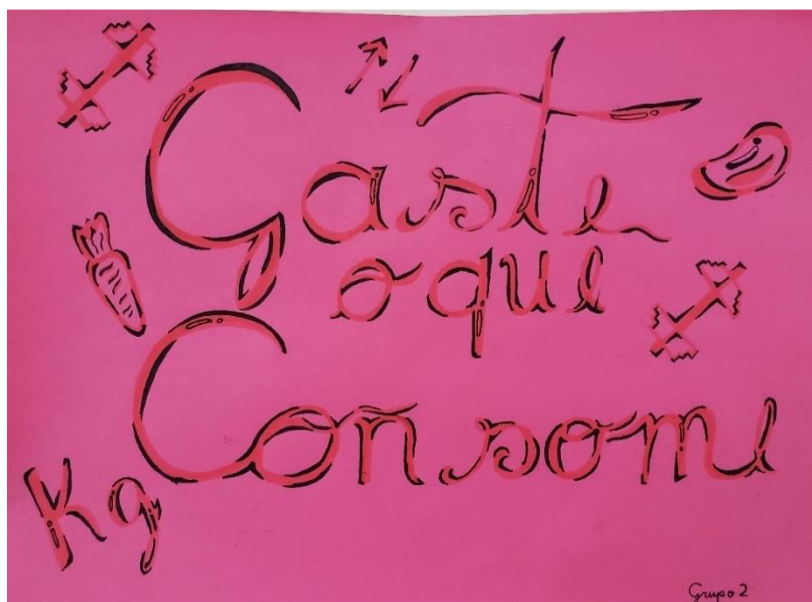 Gaste
o que
Consome
Kg
Grupo 2